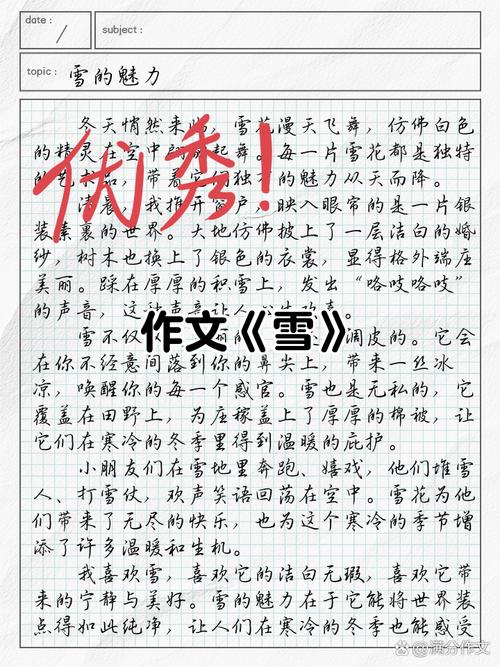 date:
subject:
topic: 雪的魅力
冬天悄然来临，雪花漫天飞舞，仿佛白色
的精灵在空中起舞。每一片雪花都是独特
的艺术品，带着它们独有的魅力从天而降。
清晨，我推开窗户，映入眼帘的是一片银
装素裹的世界。大地仿佛披上了一层洁白的婚
纱，树木也换上了银色的衣裳，显得格外端座
美丽。踩在厚厚的和雪上，发出“咯吱咯吱”
的声音，这种声音让人
优秀！
作文《雪》
雪不仅 调皮的。它会
在你不经意间落到你的鼻尖上，带来一丝冰
凉，唤醒你的每一个感官。雪也是无私的，它
覆盖在田野上，为庄稼盖上了厚厚的棉被，让
它们在寒冷的冬季里得到温暖的庇护。
小朋友们在雪地里奔跑、嬉戏，他们堆雪
人、打雪仗，欢声笑语回荡在空中。雪花为他
们带来了无尽的快乐，也为这个寒冷的季节增
添了许多温暖和生机。
我喜欢雪，喜欢它的洁白无瑕，喜欢它带
来的宁静与美好。雪的魅力在于它能将世界装
点得如此纯净，让人们在寒冷的冬季也能感受
@满分作文